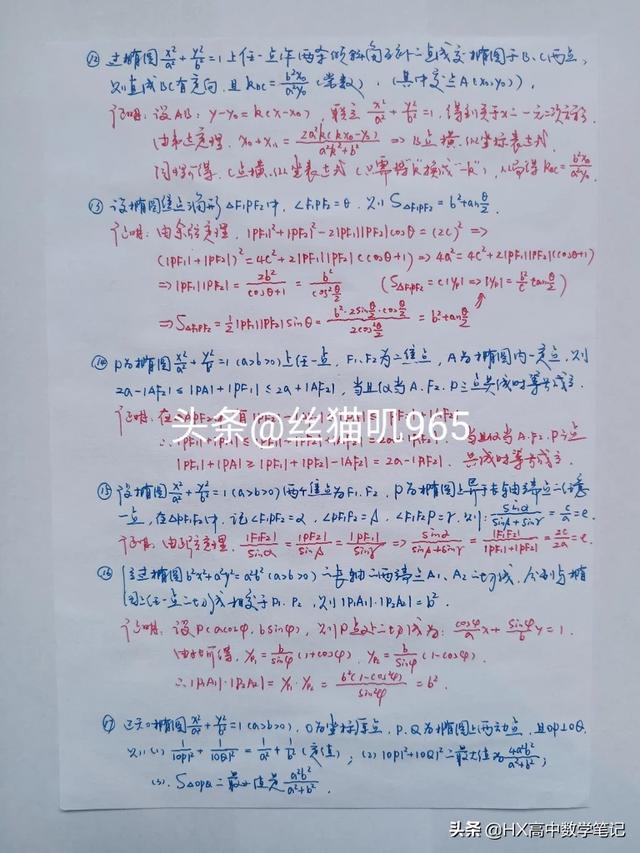 ⑫ 过椭圆x²/a²+y²/b²=1上任一点作两条倾斜角互补之直线交椭圆于B、C两点,
则直线BC有定向,且k_BC=b²x₀/a²y₀(常数). (其中定点A(x₀,y₀)),
证明:设AB:y-y₀=k(x-x₀),联立x²/a²+y²/b²=1,得到关于x之一元二次方程
由韦达定理,x₀+x₁=2a²k(kx₀-y₀)/(a²k²+b²) ⇒ B点横、纵坐标表达式
同理可得,C点横、纵坐标表达式(只需将"k"换成"-k"),从而得k_BC=b²x₀/a²y₀
⑬ 设椭圆焦点三角形△F₁PF₂中,∠F₁PF₂=θ,则S△F₁PF₂=b²tanθ/2
证明:由余弦定理,|PF₁|²+|PF₂|²-2|PF₁||PF₂|cosθ=(2c)² ⇒
(|PF₁|+|PF₂|)²=4c²+2|PF₁||PF₂|(cosθ+1) ⇒ 4a²=4c²+2|PF₁||PF₂|(cosθ+1)
⇒|PF₁||PF₂|=2b²/(cosθ+1)=b²/cos²θ/2 (S△F₁PF₂=c|yp| ⇒ |yp|=b²/c tanθ/2)
⇒S△F₁PF₂=1/2|PF₁||PF₂|sinθ=b²·2sinθ/2·cosθ/2/2cos²θ/2=b²tanθ/2
⑭ P为椭圆x²/a²+y²/b²=1(a>b>0)上任一点,F₁、F₂为二焦点,A为椭圆内一定点,则
2a-|AF₂|≤|PA|+|PF₁|≤2a+|AF₂|,当且仅当A、F₂、P三点共线时等号成立.
证明:在
头条@丝猫叽965
当且仅当A、F₂、P三点
|PF₁|+|PA|≥|PF₁|+|PF₂|-|AF₂|=2a-|AF₂| 共线时等号成立.
⑮ 设椭圆x²/a²+y²/b²=1(a>b>0)两个焦点为F₁、F₂,P为椭圆上异于长轴端点之任意
一点,在△PF₁F₂中,记∠F₁PF₂=α,∠PF₁F₂=β,∠F₁F₂P=γ,则:sinα/(sinβ+sinγ)=c/a=e.
证明:由正弦定理,|F₁F₂|/sinα=|PF₂|/sinβ=|PF₁|/sinγ ⇒ sinα/(sinβ+sinγ)=|F₁F₂|/(|PF₁|+|PF₂|)=2c/2a=e.
⑯ 过椭圆b²x²+a²y²=a²b²(a>b>0)之长轴之两端之A₁、A₂之切线,分别与椭
圆上任一点之切线相交于P₁、P₂,则|P₁A₁|·|P₂A₂|=b².
证明:设P(acosφ,bsinφ),则P点处之切线为:cosφ/a x+sinφ/b y=1.
由此可得,y_P₁=b/sinφ(1+cosφ),y_P₂=b/sinφ(1-cosφ).
∴|P₁A₁|·|P₂A₂|=y_P₁·y_P₂=b²(1-cos²φ)/sin²φ=b².
⑰ 已知椭圆x²/a²+y²/b²=1(a>b>0),O为坐标原点,P、Q为椭圆上两动点,且OP⊥OQ.
则:(1) 1/|OP|²+1/|OQ|²=1/a²+1/b²(定值);(2)|OP|²+|OQ|²之最大值为4a²b²/(a²+b²);
(3).S△OPQ之最小值是a²b²/(a²+b²).
头条 @HX高中数学笔记